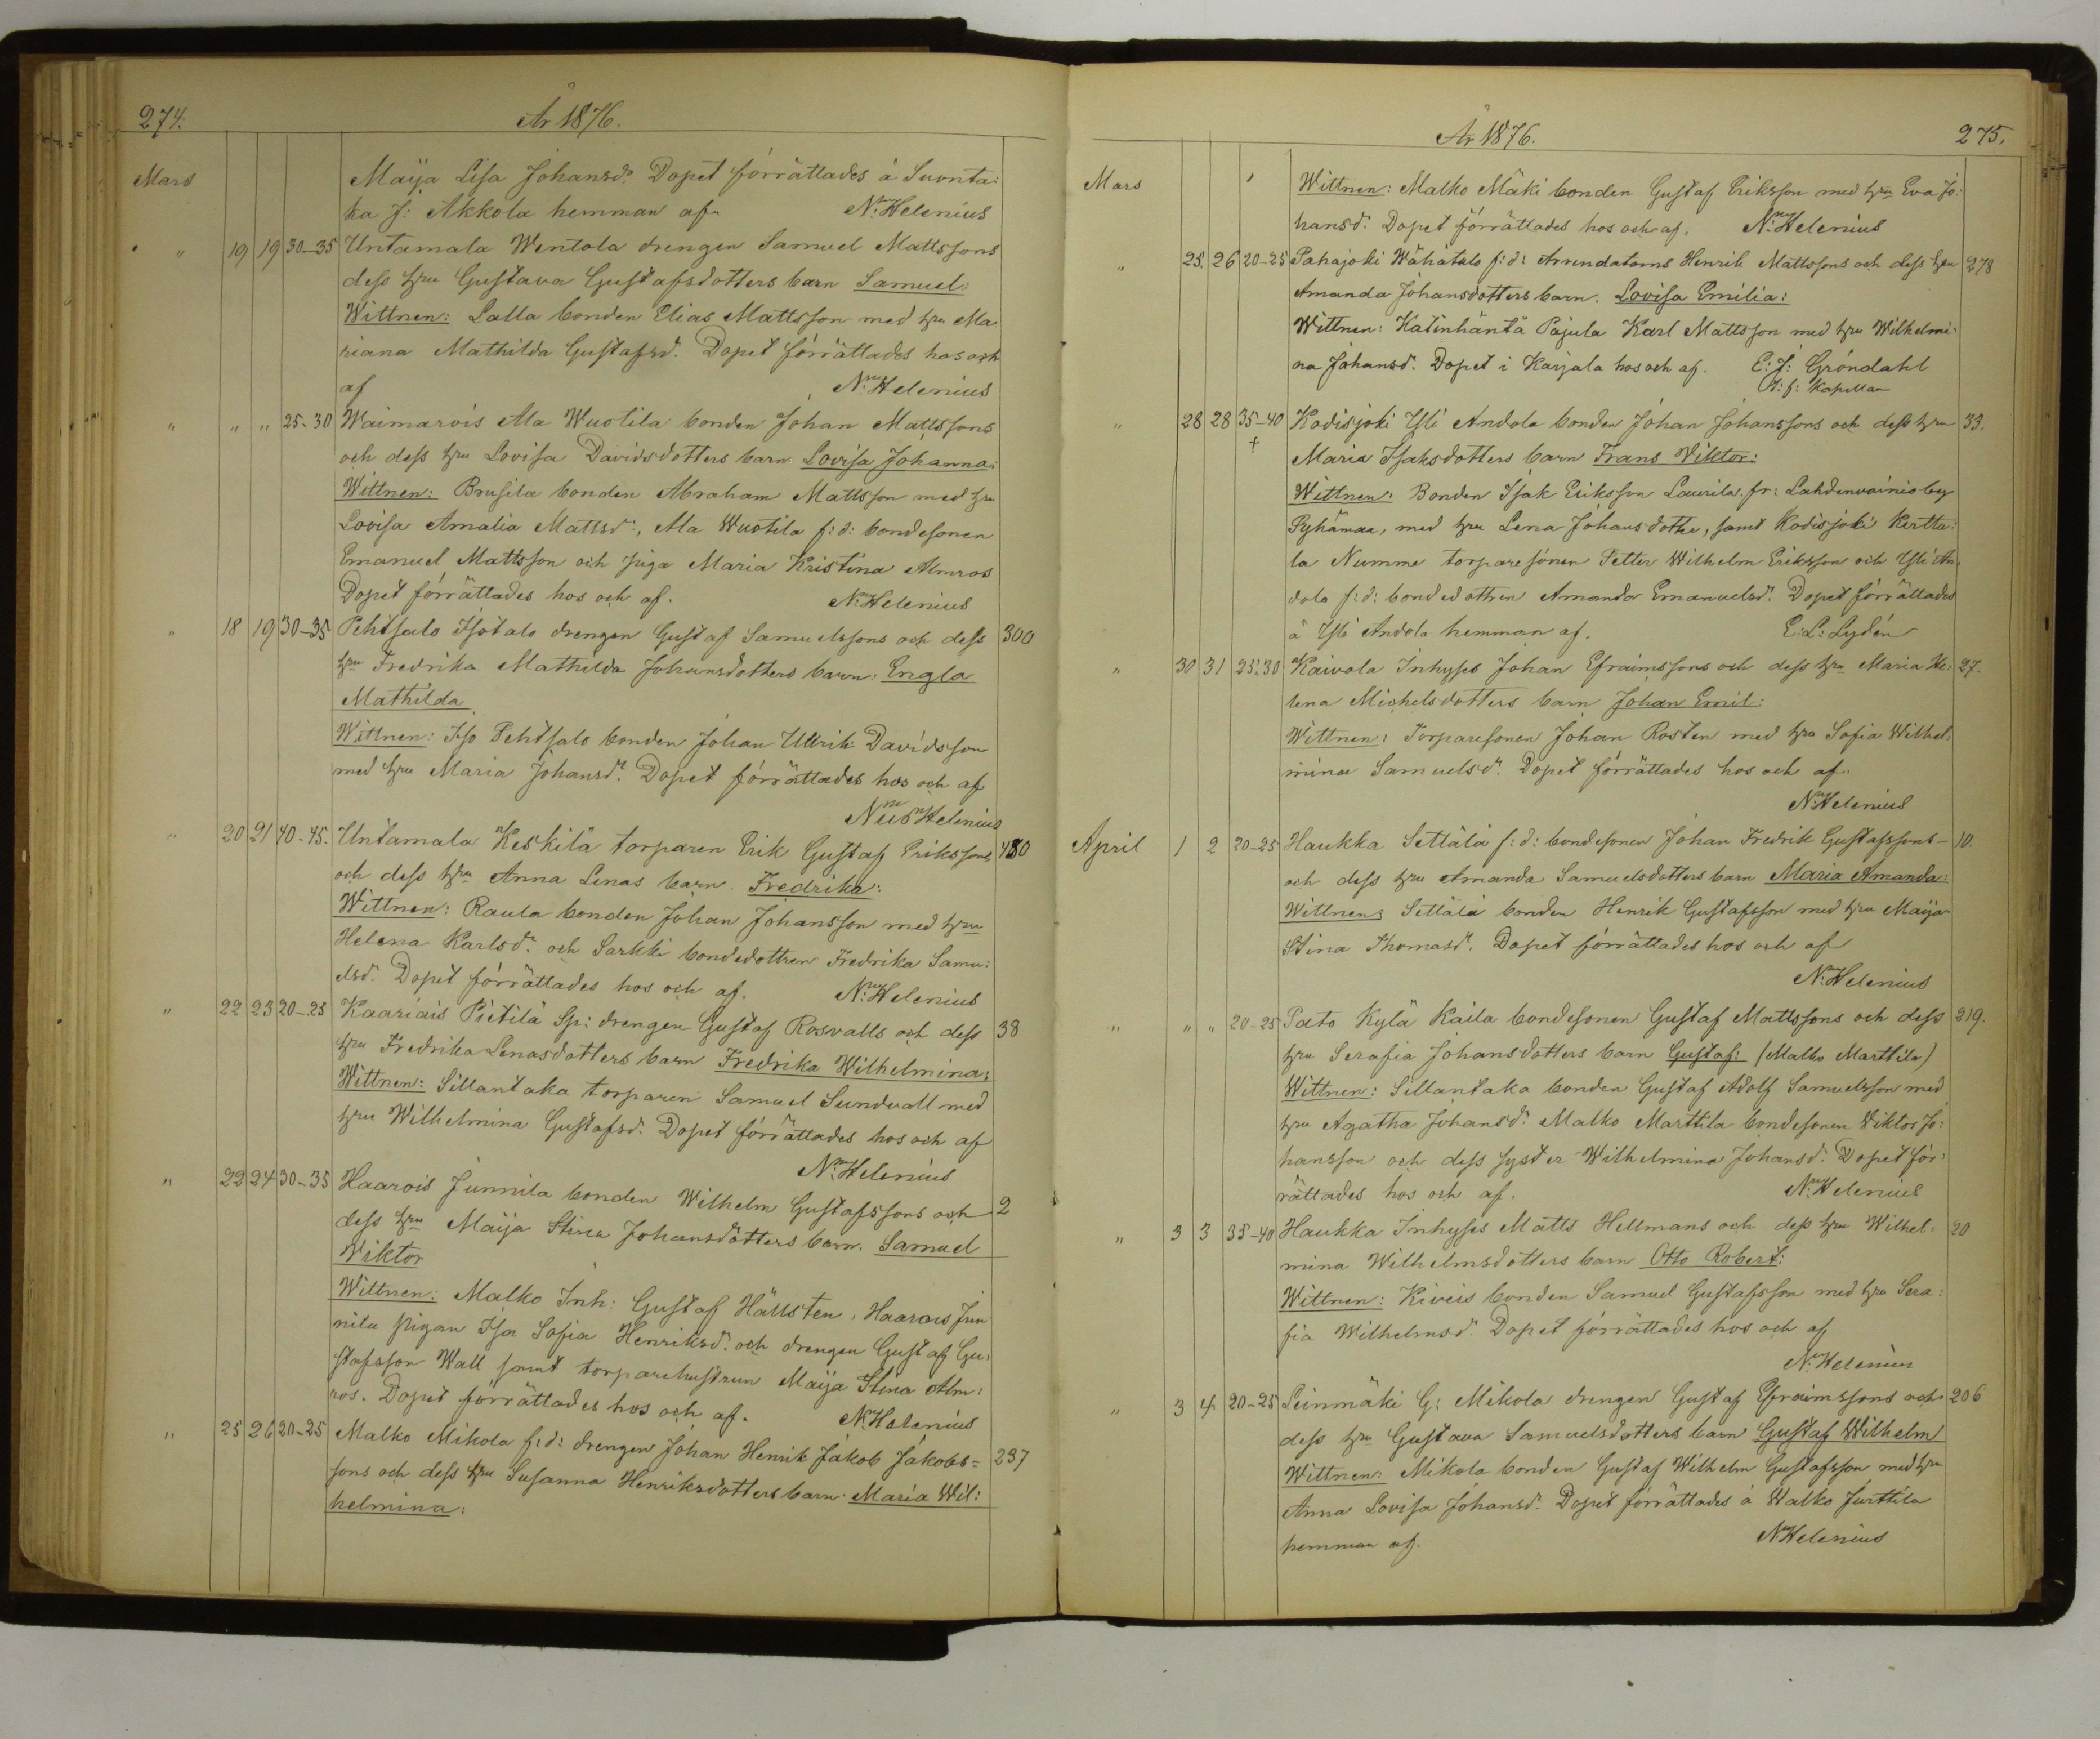 274.
År 1876.
Mars Maija Lisa Johansd:r Dopet förrättades å Suonta:
ka J: Akkola hemman af. N:m Helenius
" 19 19 30-35 Untamala Wentola drengen Samuel Mattssons
dess h:ru Gustava Gustafsdotters barn Samuel:
Wittnen: Lalla bonden Elias Mattsson med h:ru Ma
riana Mathilda Gustafsd. Dopet förrättades hos och
af N:m Helenius
" " " 25-30 Waimarois Ala Wuotila bonden Johan Mattssons
och dess h:ru Lovisa Davidsdotters barn Lovisa Johanna:
Wittnen: Brusila bonden Abraham Mattsson med h:ru
Lovisa Amalia Mattsd:r, Ala Wuotila f:d: bondesonen
Emanuel Mattsson och piga Maria Kristina Almros
Dopet förrättades hos och af. N:m Helenius
" 18 19 30-35 Pehtsalo Isotalo drengen Gustaf Samuelssons och dess 300
h:ru Fredrika Mathilda Johansdotters barn: Engla
Mathilda
Wittnen: Iso Pehtsalo bonden Johan Ullrik Davidsson
med h:ru Maria Johansd:r Dopet förrättades hos och af
N:m Helenius
" 20 21 40-45. Untamala Keskilä torparen Erik Gustaf Erikssons 480
och dess h:ru Anna Lenas barn. Fredrika:
Wittnen: Raula bonden Johan Johansson med h:ru
Helena Karlsd:r och Sarkki bondedottren Fredrika Samu:
elsd:r Dopet förrättades hos och af. N:m Helenius
" 22 23 20-25 Kaariais Pietilä Sp: drengen Gustaf Rosvalls och dess 38
h:ru Fredrika Lenasdotters barn Fredrika Wilhelmina:
Wittnen: Sillantaka torparen Samuel Sundvall med
h:ru Wilhelmina Gustafsd:r Dopet förrättades hos och af
N:m Helenius
" 22 24 30-35 Haarois Junnila bonden Wilhelm Gustafssons och 2
dess h:ru Maija Stina Johansdotters barn. Samuel
Viktor
Wittnen: Malko Inh: Gustaf Hällsten, Haarois Jun
nila pigan Isa Sofia Henriksd:r och drengen Gustaf Gu:
stafsson Wall samt torparehustrun Maija Stina Alm:
ros. Dopet förrättades hos och af. N:m Helenius
" 25 26 20-25 Malko Mikola f:d: drengen Johan Henrik Jakob Jakobs= 237
sons och dess h:ru Susanna Henriksdotters barn Maria Wil:
helmina:
År 1876. 275.
Mars Wittnen: Malko Mäki bonden Gustaf Eriksson med h:ru Eva Jo:
hansd:r Dopet förrättades hos och af. N:m Helenius
" 25. 26 20-25 Pahajoki Wähätalo f:d: Arrendatorns Henrik Mattssons och dess h:ru 278
Amanda Johansdotters barn. Lovisa Emilia:
Wittnen: Katinhäntä Pajula Karl Mattsson med h:ru Wilhelmi:
na Johansd:r Dopet i Karjala hos och af. E: J: Gröndahl
V: f: Kapellan
" 28 28 35-40 Kodisjoki Yli Andola bonden Johan Johanssons och dess h:ru 33.
† Maria Isaksdotters barn Frans Viktor:
Wittnen: Bonden Isak Eriksson Laurila fr: Lahdenvainio by
Pyhämaa, med h:ru Lena Johansdotter, samt Kodisjoki Kertta:
la Numme torparesonen Petter Wilhelm Eriksson och Yli An:
dola f:d: bondedottren Amanda Emanuelsd:r Dopet förrättades
å Yli Andola hemman af. E: L: Lydén
" 30 31 25-30 Kaivola Inhyses Johan Efraimssons och dess h:ru Maria He: 27.
lena Michelsdotters barn Johan Emil:
Wittnen: Torparesonen Johan Rosten med h:ru Sofia Wilhel:
mina Samuelsd:r Dopet förrättades hos och af.
N:m Helenius
April 1 2 20-25 Haukka Settälä f:d: bondesonen Johan Fredrik Gustafssons - 10.
och dess h:ru Amanda Samuelsdotters barn Maria Amanda:
Wittnen: Settälä bonden Henrik Gustafsson med h:ru Maija
Stina Thomasd:r. Dopet förrättades hos och af
N:m Helenius
" " " 20-25 Pato Kylä Kaila bondesonen Gustaf Mattssons och dess 219.
h:ru Serafia Johansdotters barn Gustaf: (Malko Marttila)
Wittnen: Sillantaka bonden Gustaf Adolf Samuelsson med
h:ru Agatha Johansd:r Malko Marttila bondesonen Viktor Jo:
hansson och dess syster Wilhelmina Johansd:r Dopet för:
rättades hos och af. N:m Helenius
" 3 3 35-40 Haukka Inhyses Matts Hellmans och dess h:ru Wilhel: 20
mina Wilhelmsdotters barn Otto Robert:
Wittnen: Kiveis bonden Samuel Gustafsson med h:ru Sera:
fia Wilhelmsd:r Dopet förrättades hos och af
N:m Helenius
" 3 4 20-25 Leinmäki G: Mikola drengen Gustaf Efraimssons och 206
dess h:ru Gustava Samuelsdotters barn Gustaf Wilhelm
Wittnen: Mikola bonden Gustaf Wilhelm Gustafsson med h:ru
Anna Lovisa Johansd:r Dopet förrättades å Walko Jurttila
hemman af. N:m Helenius